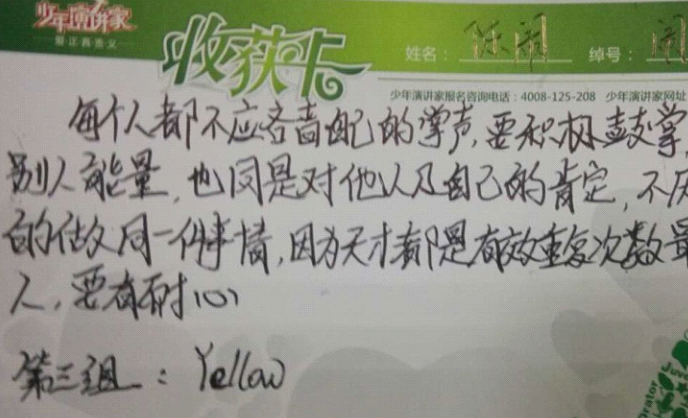 少年演讲家
收获卡
姓名：
绰号：
少年演讲家报名咨询电话：4008-125-208 少年演讲家网址
每个人都不应吝啬自己的掌声，要积极鼓掌，
别人能量，也同是对他人及自己的肯定，不厌
的做同一件事情，因为天才都是有效重复次数最
人，要有耐心
第三组：Yellow